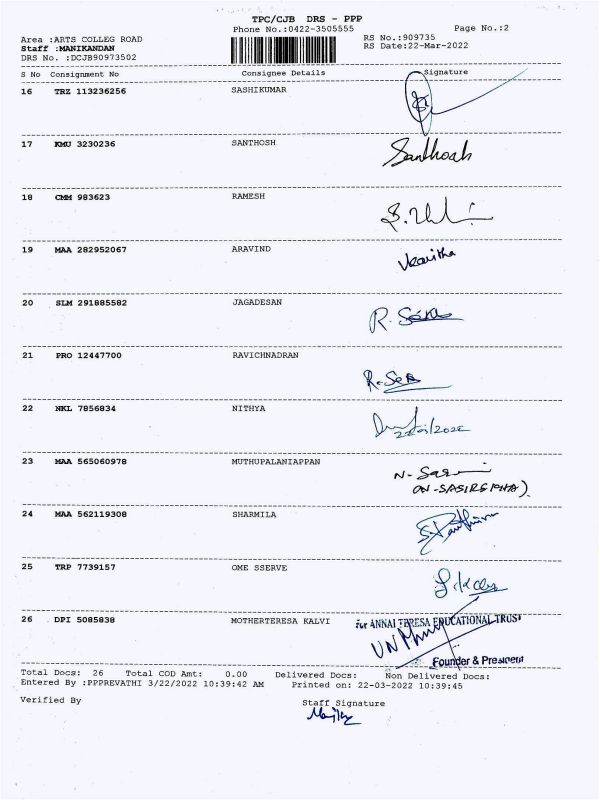 TPC/CJB DRS - PPP
Phone No.:0422-3505555 Page No.:2
Area :ARTS COLLEG ROAD RS No.:909735
Staff :MANIKANDAN RS Date:22-Mar-2022
DRS No. :DCJB90973502
S No Consignment No Consignee Details Signature
16 TRZ 113236256 SASHIKUMAR
17 KMU 3230236 SANTHOSH Santhosh
18 CMM 983623 RAMESH
19 MAA 282952067 ARAVIND
20 SLM 291885582 JAGADESAN
21 PRO 12447700 RAVICHNADRAN
22 NKL 7856834 NITHYA
23 MAA 565060978 MUTHUPALANIAPPAN
24 MAA 562119308 SHARMILA
25 TRP 7739157 OME SSERVE
26 DPI 5085838 MOTHERTERESA KALVI for ANNAI TERESA EDUCATIONAL TRUST
Founder & President
Total Docs: 26 Total COD Amt: 0.00 Delivered Docs: Non Delivered Docs:
Entered By :PPPREVATHI 3/22/2022 10:39:42 AM Printed on: 22-03-2022 10:39:45
Verified By Staff Signature